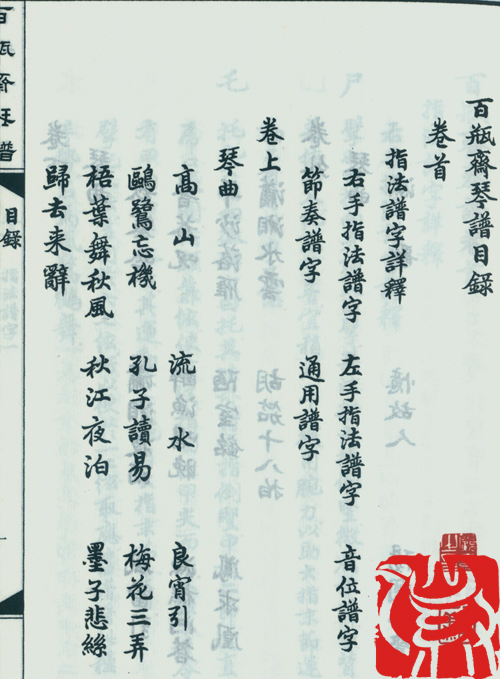 百瓶齋琴譜目錄
卷首
指法譜字詳釋
右手指法譜字 左手指法譜字 音位譜字
節奏譜字 通用譜字
卷上
琴曲
高山 流水 良宵引
鷗鷺忘機 孔子讀易 梅花三弄
梧葉舞秋風 秋江夜泊 墨子悲絲
歸去來辭
百瓶齋琴譜
目錄